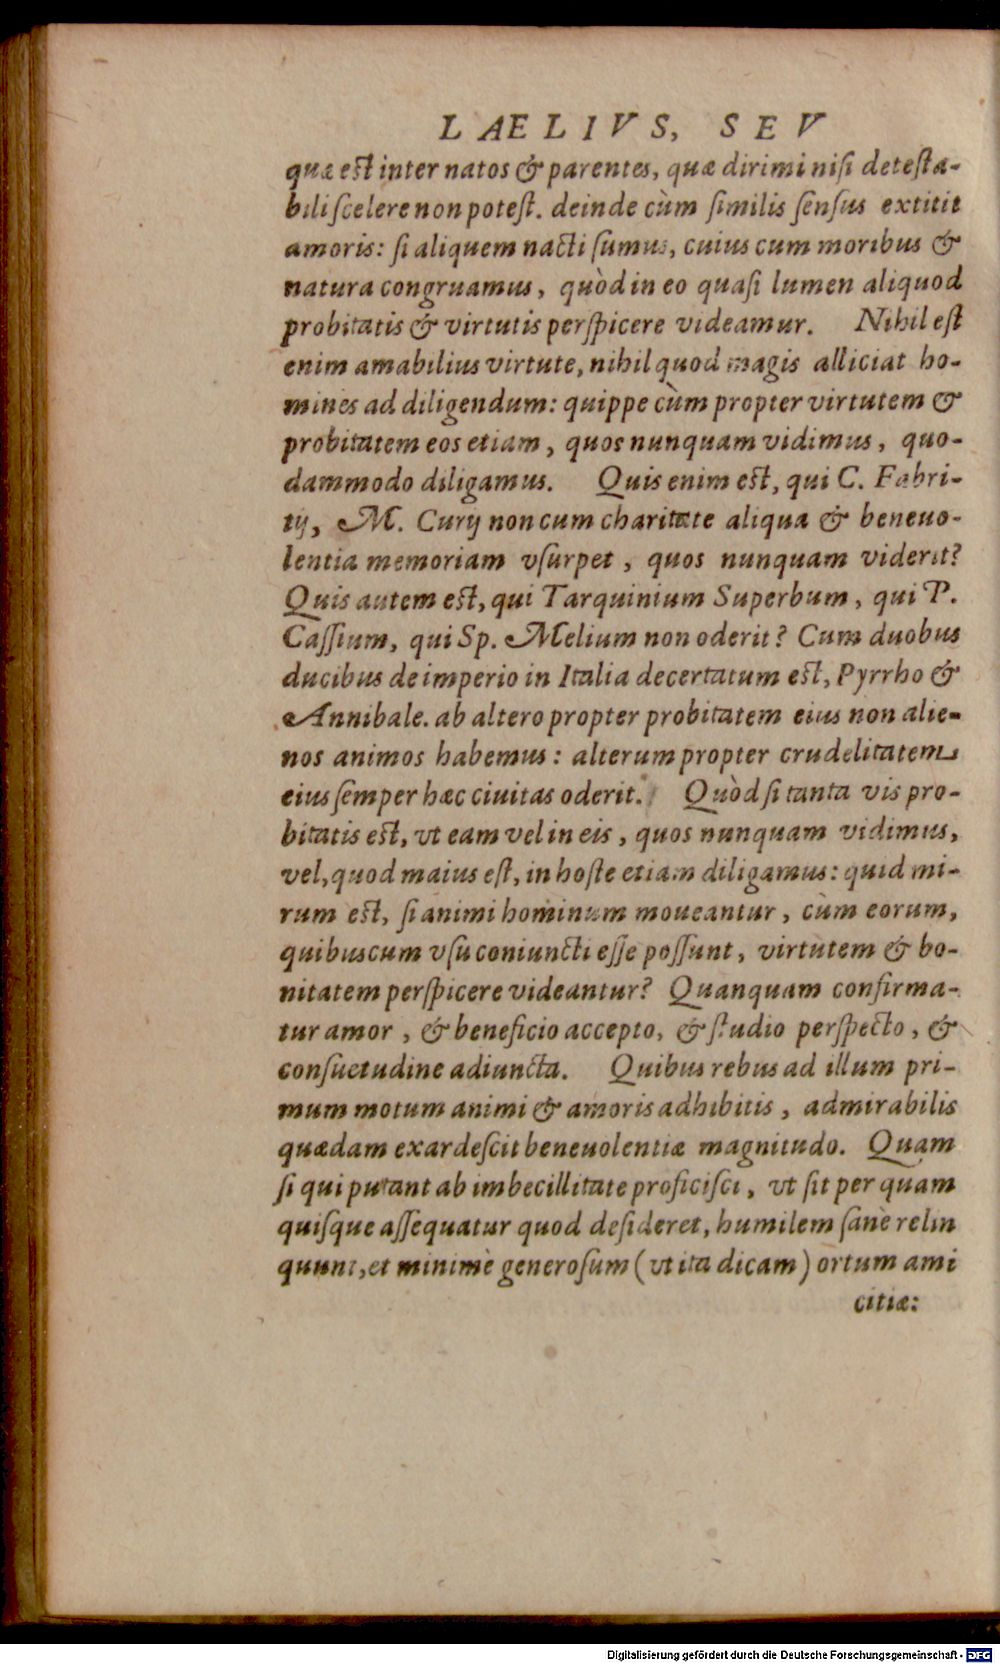 LAELIVS, SEV
quæ est inter natos & parentes, quæ dirimi nisi detesta-
bili scelere non potest. deinde cùm similis sensus extitit
amoris: si aliquem nacti sumus, cuius cum moribus &
natura congruamus, quòd in eo quasi lumen aliquod
probitatis & virtutis perspicere videamur. Nihil est
enim amabilius virtute, nihil quod magis alliciat ho-
mines ad diligendum: quippe cùm propter virtutem &
probitatem eos etiam, quos nunquam vidimus, quo-
dammodo diligamus. Quis enim est, qui C. Fabri-
tij, M. Curij non cum charitate aliqua & beneuo-
lentia memoriam vsurpet, quos nunquam viderit?
Quis autem est, qui Tarquinium Superbum, qui P.
Cassium, qui Sp. Melium non oderit? Cum duobus
ducibus de imperio in Italia decertatum est, Pyrrho &
Annibale. ab altero propter probitatem eius non alie-
nos animos habemus: alterum propter crudelitatem
eius semper hæc ciuitas oderit. Quòd si tanta vis pro-
bitatis est, vt eam vel in eis, quos nunquam vidimus,
vel, quod maius est, in hoste etiam diligamus: quid mi-
rum est, si animi hominum moueantur, cùm eorum,
quibuscum vsu coniuncti esse possunt, virtutem & bo-
nitatem perspicere videantur? Quanquam confirma-
tur amor, & beneficio accepto, & studio perspecto, &
consuetudine adiuncta. Quibus rebus ad illum pri-
mum motum animi & amoris adhibitis, admirabilis
quædam exardescit beneuolentiæ magnitudo. Quam
si qui putant ab imbecillitate proficisci, vt sit per quam
quisque assequatur quod desideret, humilem sanè relin
quunt, et minimè generosum (vt ita dicam) ortum ami
citiæ:
Digitalisierung gefördert durch die Deutsche Forschungsgemeinschaft - DFG